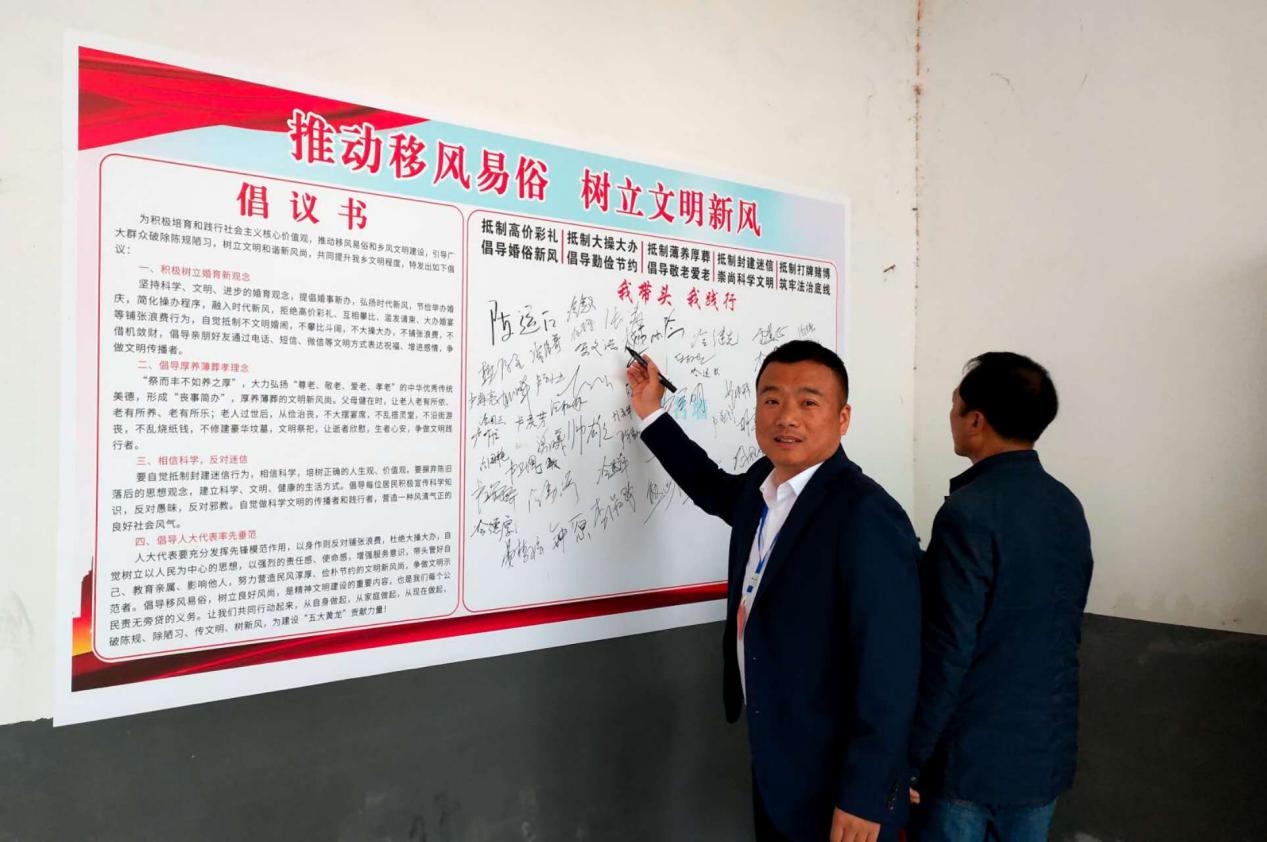 推动移风易俗 树立文明新风
倡议书
为积极培育和践行社会主义核心价值观，推动移风易俗和乡风文明建设，引导广
大群众破除陈规陋习，树立文明和谐新风尚，共同提升我乡文明程度，特发出如下倡
议：
一、积极树立婚育新观念
坚持科学、文明、进步的婚育观念，提倡婚事新办，弘扬时代新风，节俭举办婚
庆，简化操办程序，融入时代新风，拒绝高价彩礼、互相攀比、滥发请柬、大办婚宴
等铺张浪费行为，自觉抵制不文明婚闹，不攀比斗阔，不大操大办，不铺张浪费，不
借机敛财，倡导亲朋好友通过电话、短信、微信等文明方式表达祝福、增进感情，争
做文明传播者。
二、倡导厚养薄葬孝理念
“祭而丰不如养之厚”，大力弘扬“尊老、敬老、爱老、孝老”的中华优秀传统
美德，形成“丧事简办”，厚养薄葬的文明新风尚。父母健在时，让老人老有所依、
老有所养、老有所乐；老人过世后，从俭治丧，不大摆宴席，不乱搭灵堂，不沿街游
丧，不乱烧纸钱，不修建豪华坟墓，文明祭祀，让逝者欣慰，生者心安，争做文明践
行者。
三、相信科学，反对迷信
要自觉抵制封建迷信行为，相信科学，培树正确的人生观、价值观。要摒弃陈旧
落后的思想观念，建立科学、文明、健康的生活方式。倡导每位居民积极宣传科学知
识，反对愚昧，反对邪教。自觉做科学文明的传播者和践行者，营造一种风清气正的
良好社会风气。
四、倡导人大代表率先垂范
人大代表要充分发挥先锋模范作用，以身作则反对铺张浪费，杜绝大操大办，自
觉树立以人民为中心的思想，以强烈的责任感、使命感，增强服务意识，带头管好自
己、教育亲属、影响他人，努力营造民风淳厚、俭朴节约的文明新风尚，争做文明示
范者。倡导移风易俗，树立良好风尚，是精神文明建设的重要内容，也是我们每个公
民责无旁贷的义务。让我们共同行动起来，从自身做起，从家庭做起，从现在做起，
破陈规、除陋习、传文明、树新风，为建设“五大黄龙”贡献力量！
抵制高价彩礼 抵制大操大办 抵制薄养厚葬 抵制封建迷信 抵制打牌赌博
倡导婚俗新风 倡导勤俭节约 倡导敬老爱老 崇尚科学文明 筑牢法治底线
我带头 我践行